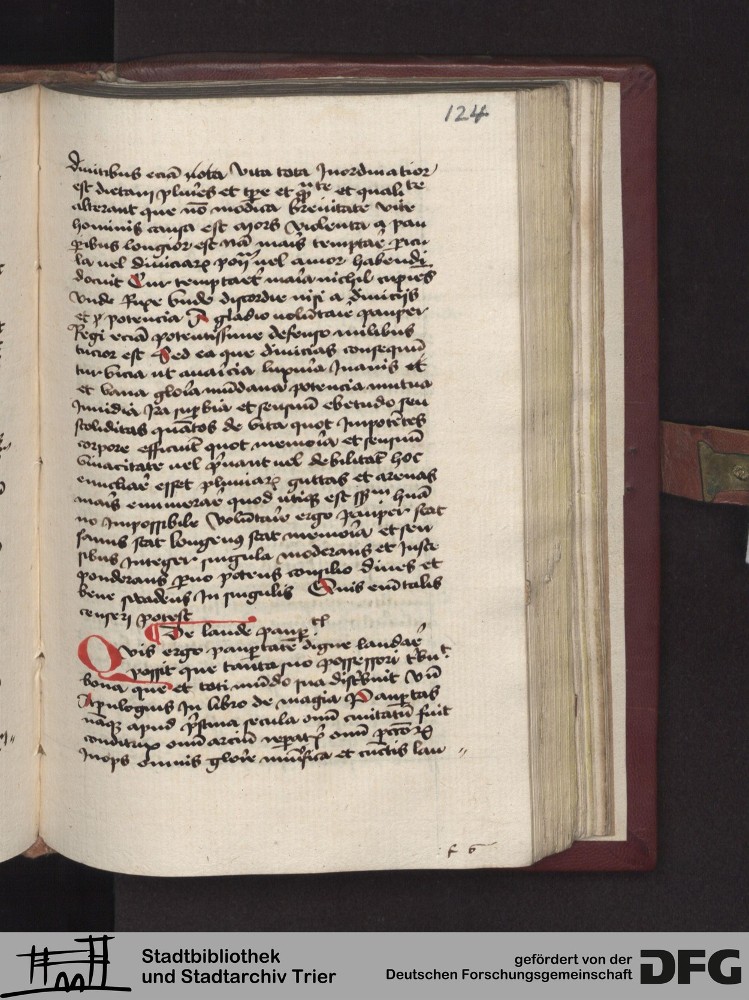 124
diuitibus eciā nota vita tota Inordinatior
est dietam plures et tpe et qāte et qualite
alterant que nō modica breuitate vite
hominis causa est mors violenta a pau
peribus longior est nā mais temptare picu
la vel diuiciarꝝ vel amor habendi
docuit Cur temptaret maia nichil cupies
vnde Rixe vnde discordie nisi a diuicijs
et p potencia A gladio volūtarie pauper
Regi eciā potentissime defenso milibus
tucior est Sed ea que diuicias consequū
tur vicia ut auaricia luxuria Inanis et
et vana gloria mūdana potencia mutua
Inuidia Ira supbia et sensuū ebetudo seu
stoliditas quātos de vita quot Impotētes
corpore efficiunt quot memoria et sensuū
viuacitate vel priuant vel debilitāt hoc
enucliare esset pluuiarꝝ guttas et arenas
maris enumerare quod utiqꝫ est huā
no Impossibile Voluntarie ergo pauper stat
sanus stat longeuꝯ stat memoria et sen
sibus Integer singula moderans et Iuste
ponderans potens consilio diues et
bene suadens In singulis Quis em talis
censeri potest
De laude paup
Qvis ergo paupertatē digne laudare
possit que tanta suo possessori tbuit
bona que et toti mūdo sua distribuit Vn
Apulogius In libro de magia Paupertas
namqꝫ apud pristina secula omī ciuitatū fuit
conditrix omī arciū repatrix omī pctōrꝫ
Inops omnis glorie munifica et cūctis lau
f 6
Stadtbibliothek
und Stadtarchiv Trier
gefördert von der
Deutschen Forschungsgemeinschaft
DFG